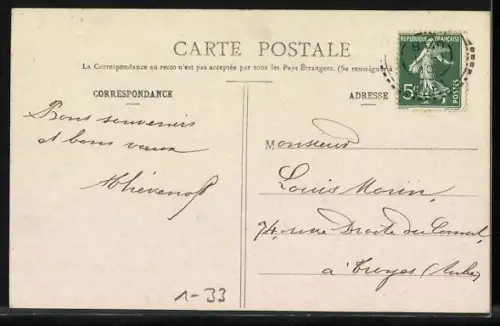 CARTE POSTALE
La Correspondance au recto n'est pas acceptée par tous les Pays Étrangers. (Se renseigner
CORRESPONDANCE
ADRESSE
REPUBLIQUE FRANÇAISE
5c
POSTES
Bons souvenirs
et bons vœux
Thévenot
Monsieur
Louis Morin,
74, rue Droite du Canal,
à Troyes (Aube)
1-33